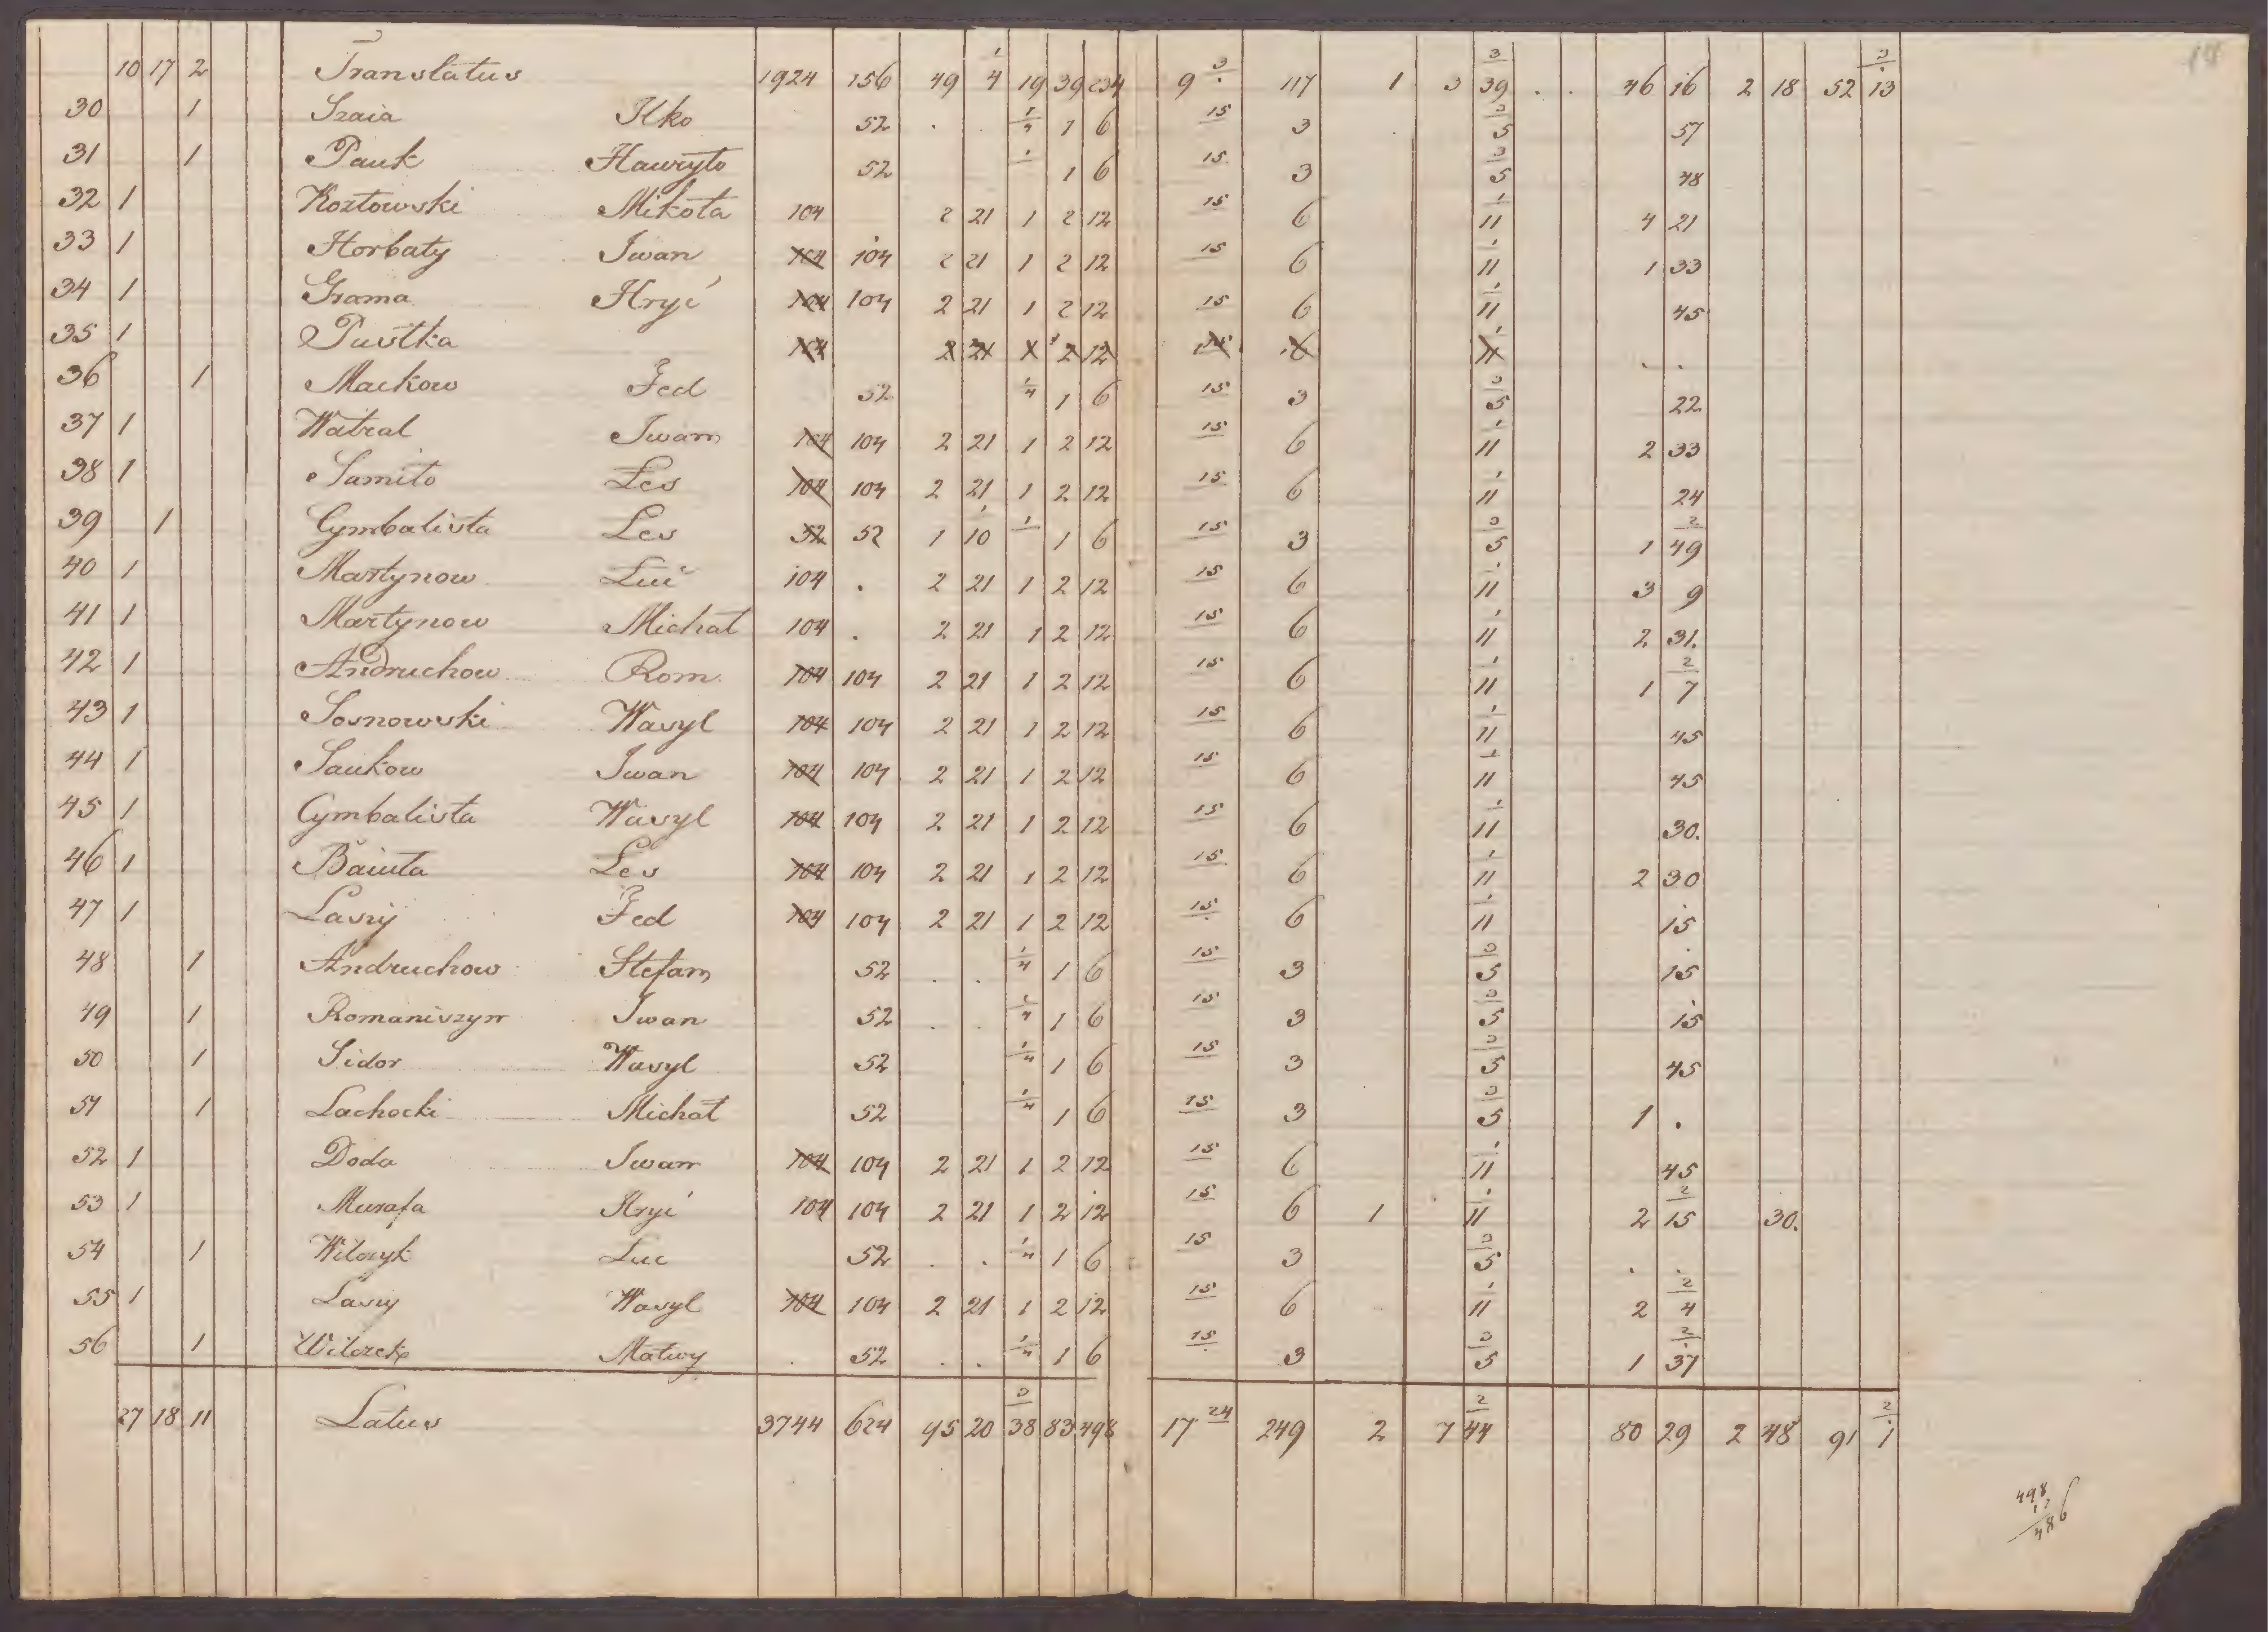 10 17 2 Translatus 1924 156 49 1/4 19 39 234 9 3/. 117 1 3 3/39 . . 46 16 2 18 52 3/13
30 1 Szaia Ilko 52 . . 1/4 1 6 15 3 . 3/5 57
31 1 Pauk Hawryło 52 1 6 15 3 3/5 48
32 1 Kozłowski Mikoła 104 2 21 1 2 12 15 6 1/11 4 21
33 1 Horbaty Iwan 104 104 2 21 1 2 12 15 6 1/11 1 33
34 1 Grama Hryć 104 104 2 21 1 2 12 15 6 1/11 45
35 1 Pustka 104 2 21 1 2 12 15 6 1/11 . .
36 1 Mackow Fed 52 1/4 1 6 15 3 3/5 22
37 1 Watral Iwan 104 104 2 21 1 2 12 15 6 1/11 2 33
38 1 Samiło Les 104 104 2 21 1 2 12 15 6 1/11 24
39 1 Cymbalista Les 52 52 1 1/10 1 6 15 3 3/5 1 2/49
40 1 Martynow Luć 104 . 2 21 1 2 12 15 6 1/11 3 9
41 1 Martynow Michał 104 . 2 21 1 2 12 15 6 1/11 2 31.
42 1 Andruchow Rom 104 104 2 21 1 2 12 15 6 1/11 1 2/7
43 1 Sosnowski Wasyl 104 104 2 21 1 2 12 15 6 1/11 45
44 1 Saukow Iwan 104 104 2 21 1 2 12 15 6 1/11 45
45 1 Cymbalista Wasyl 104 104 2 21 1 2 12 15 6 1/11 30.
46 1 Les 104 104 2 21 1 2 12 15 6 1/11 2 30
47 1 Fed 104 104 2 21 1 2 12 15 6 1/11 15
48 1 Andruchow Stefan 52 . . 1/4 1 6 15 3 3/5 15
49 1 Romaniszyn Iwan 52 . . 1/4 1 6 15 3 3/5 15
50 1 Sidor Wasyl 52 1/4 1 6 15 3 3/5 45
51 1 Lachocki Michał 52 1/4 1 6 15 3 3/5 1 .
52 1 Doda Iwan 104 104 2 21 1 2 12 15 6 1/11 45
53 1 Murafa Hryć 104 104 2 21 1 2 12 15 6 1 1/11 2 2/15 30.
54 1 Wilczyk Luc 52 . . 1/4 1 6 15 3 3/5 . .
55 1 Wasyl 104 104 2 21 1 2 12 15 6 1/11 2 2/4
56 1 Wilczek Matwy . 52 . . 1/4 1 6 15 3 3/5 1 2/37
27 18 11 Latus 3744 624 95 20 3/38 83 498 17 24 249 2 7 2/44 80 29 2 48 91 2/1
498
12
486